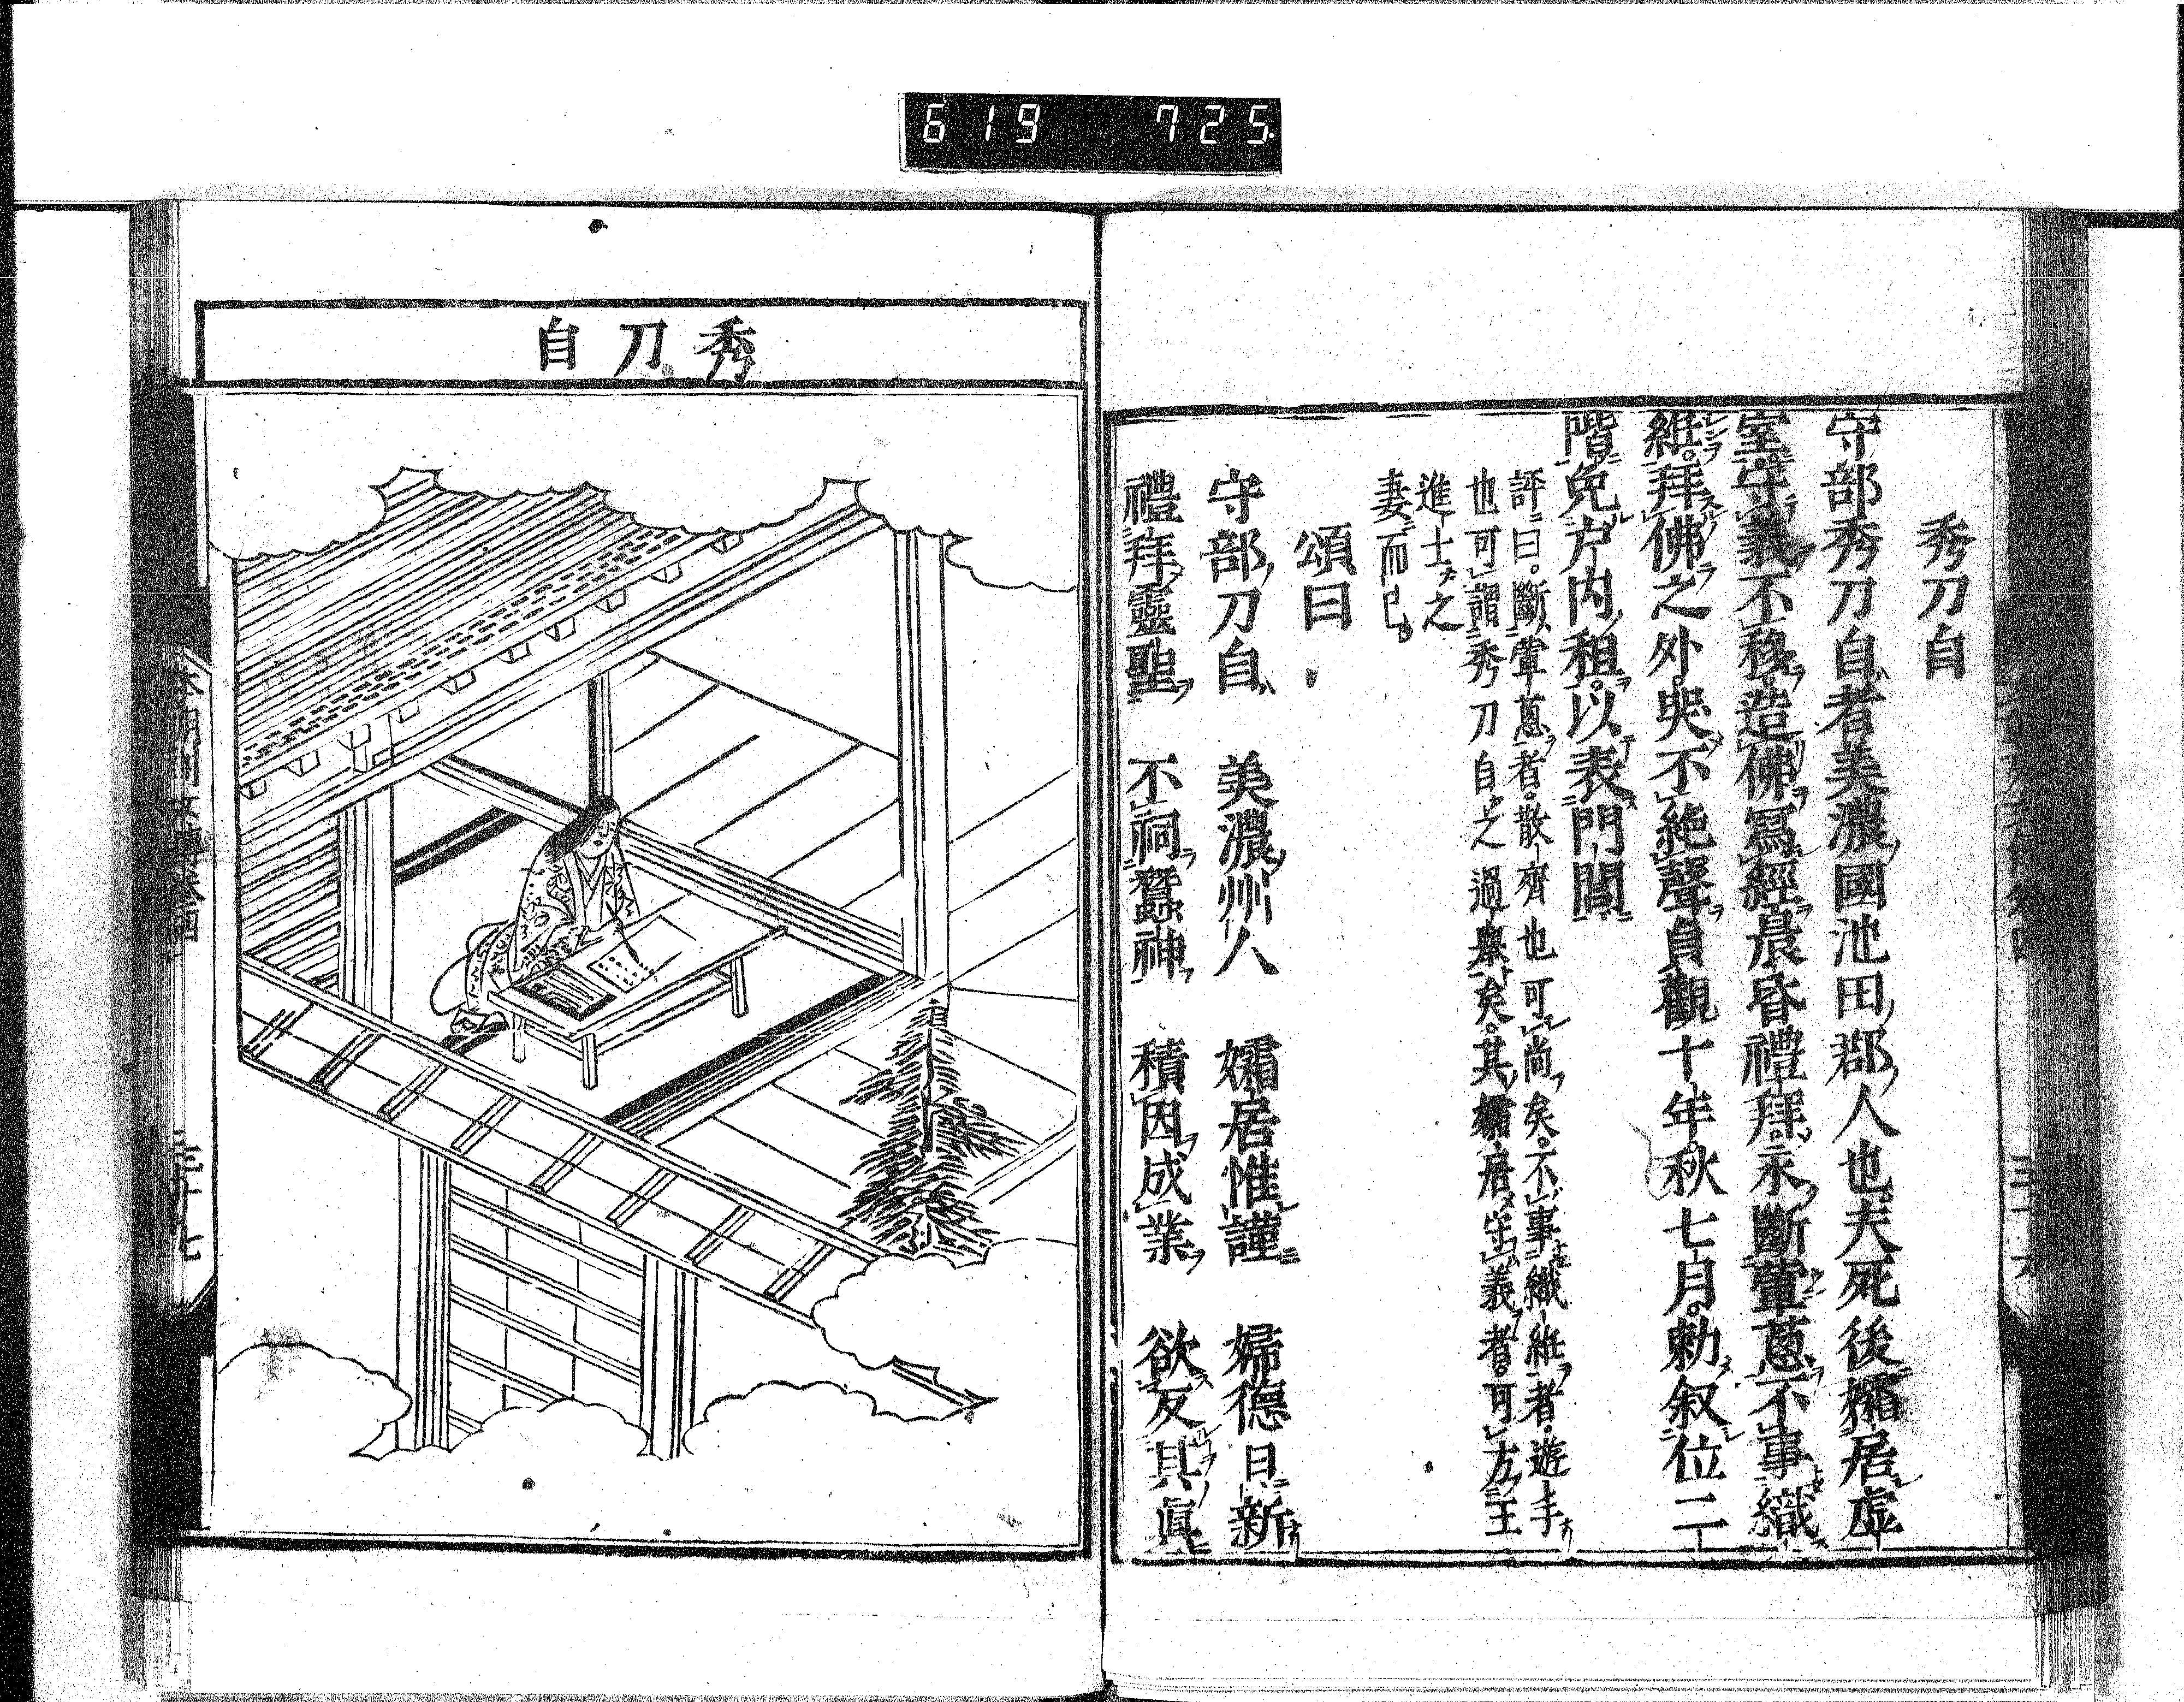 619 725
秀刀自
守部秀刀自者美濃國池田郡人也夫死後孀居虛
室守義不移造佛寫經晨昏禮拜永斷葷蔥不事織
紝。拜佛之外哭不絶聲貞觀十年秋七月。勅叙位二
階免户内租。以表門閭
評曰。斷葷蔥者。散齊也可尚矣。不事織紝者。遊手
也可謂秀刀自之過擧矣。其孀居守義者。可方王
進士之
妻而已。
頌曰
守部刀自 美濃州人 孀居惟謹 婦德日新
禮拜靈聖 不祠蠶神 積因成業 欲反其眞
秀刀自